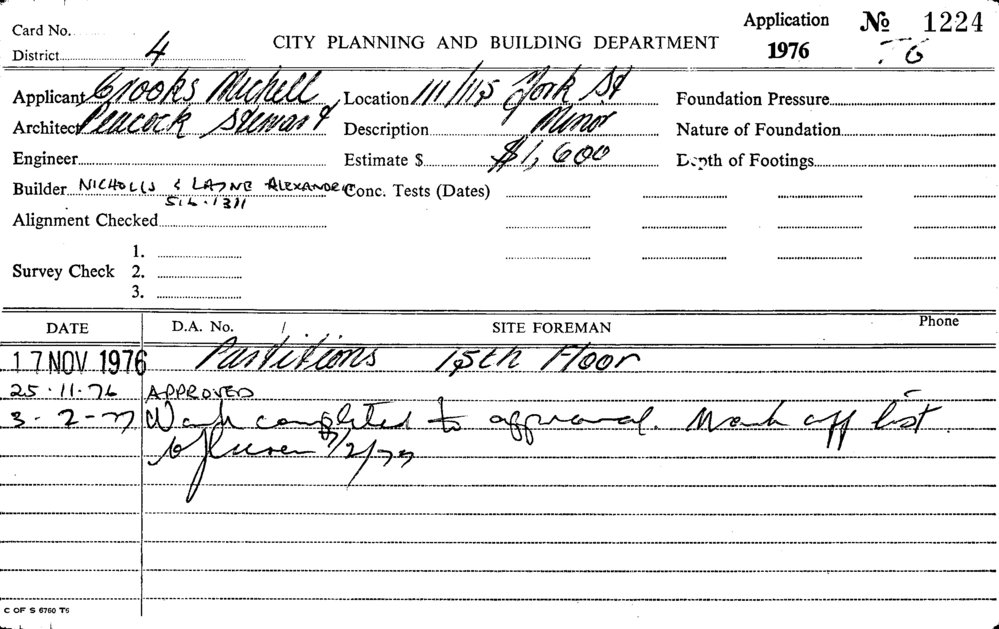 Application № 1224
Card No.
CITY PLANNING AND BUILDING DEPARTMENT
District 4
1976 76
Applicant Crooks Michell Location 111/115 York St Foundation Pressure
Architect Peacock Stewart Description Minor Nature of Foundation
Engineer Estimate $ $1,600 Depth of Footings
Builder NICHOLLS & LAYNE ALEXANDRIA Conc. Tests (Dates)
516.1311
Alignment Checked
1.
Survey Check 2.
3.
DATE D.A. No. SITE FOREMAN Phone
17 NOV 1976 Partitions 15th Floor
25.11.76 APPROVED
3-2-77 Work completed to approval. Mark off list
7/2/77
C OF S 6760 T6